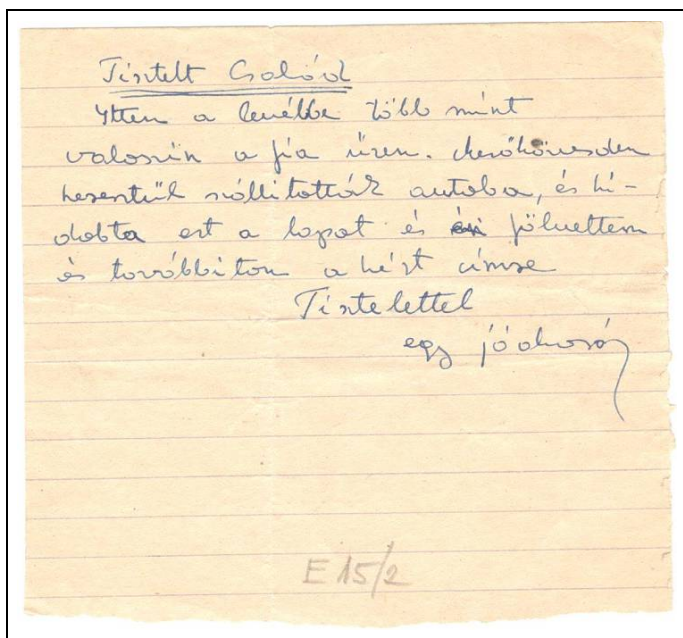 Tisztelt Család
Itten a levélbe több mint
valoszin a fia üzen. Mezőkövesden
keresztül szállitották autoba, és ki-
dobta ezt a lapot és én fölvettem
és továbbitom a kért címre
Tisztelettel
egy jóakaró
E 15/2